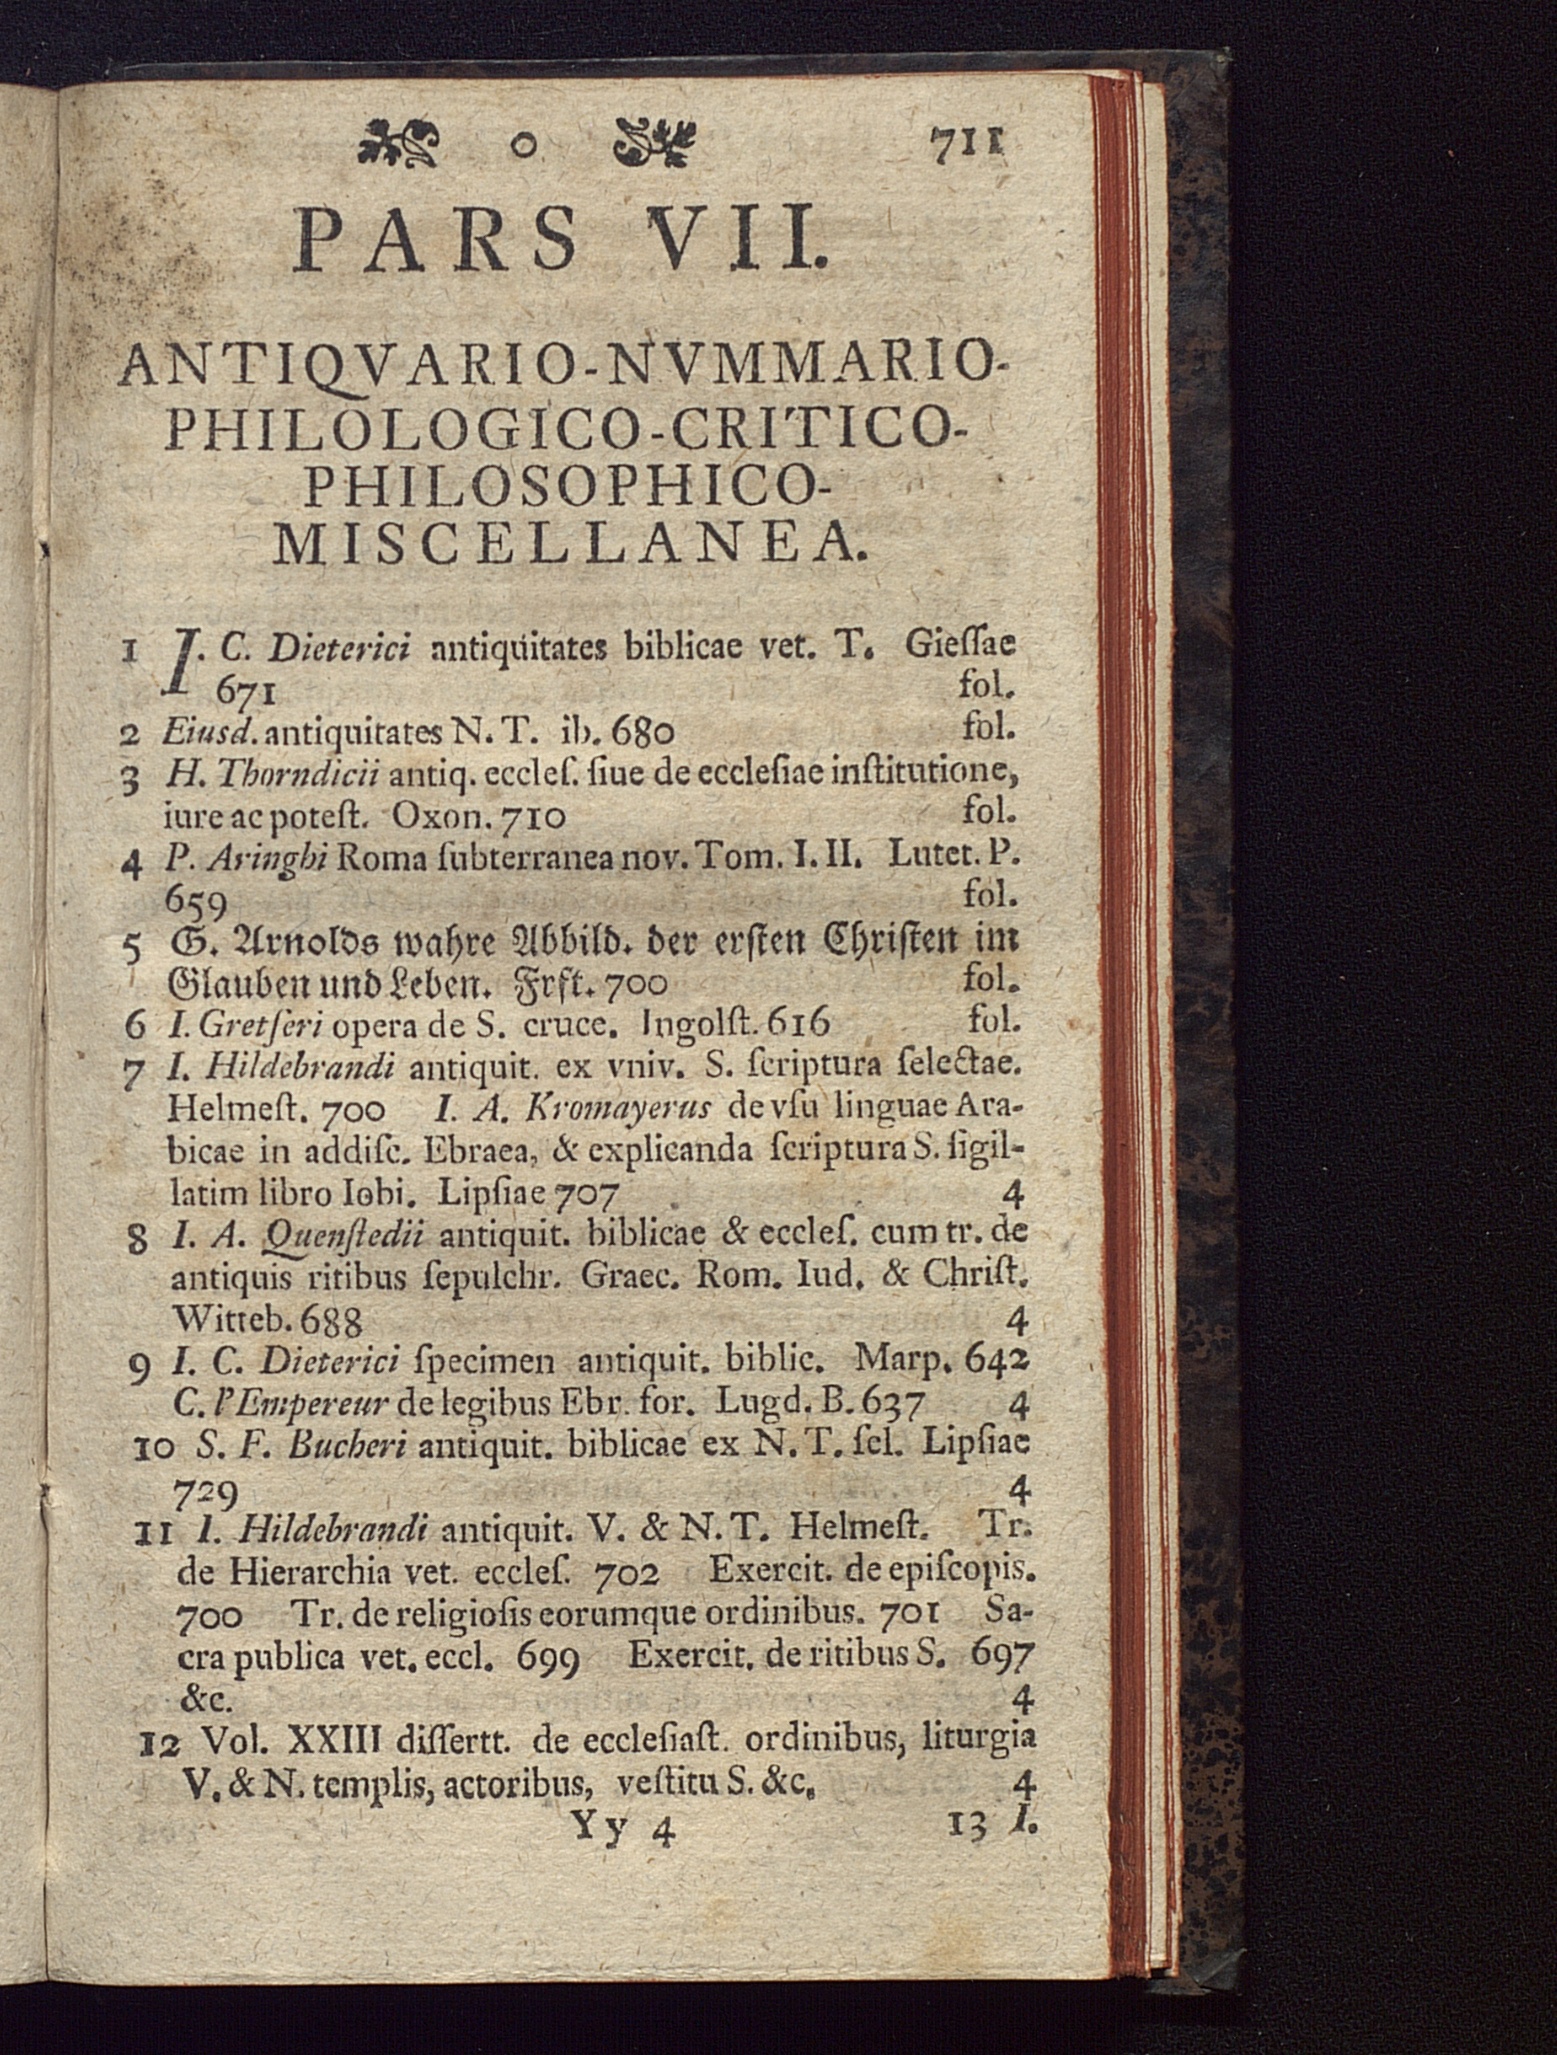 o 711
PARS VII.
ANTIQVARIO-NVMMARIO-
PHILOLOGICO-CRITICO-
PHILOSOPHICO-
MISCELLANEA.
1 I. C. Dieterici antiquitates biblicae vet. T. Gieſſae
671 fol.
2 Eiusd. antiquitates N. T. ib. 680 fol.
3 H. Thorndicii antiq. eccleſ. ſiue de eccleſiae inſtitutione,
iure ac poteſt. Oxon. 710 fol.
4 P. Aringhi Roma ſubterranea nov. Tom. I. II. Lutet. P.
659 fol.
5 G. Arnolds wahre Abbild. der erſten Chriſten im
Glauben und Leben. Frft. 700 fol.
6 I. Gretſeri opera de S. cruce. Ingolſt. 616 fol.
7 I. Hildebrandi antiquit. ex vniv. S. ſcriptura ſelectae.
Helmeſt. 700 I. A. Kromayerus de vſu linguae Ara-
bicae in addiſc. Ebraea, & explicanda ſcriptura S. ſigil-
latim libro Iobi. Lipſiae 707 4
8 I. A. Quenſtedii antiquit. biblicae & eccleſ. cum tr. de
antiquis ritibus ſepulchr. Graec. Rom. Iud. & Chriſt.
Witteb. 688 4
9 I. C. Dieterici ſpecimen antiquit. biblic. Marp. 642
C. l'Empereur de legibus Ebr. for. Lugd. B. 637 4
10 S. F. Bucheri antiquit. biblicae ex N. T. ſel. Lipſiae
729 4
11 I. Hildebrandi antiquit. V. & N. T. Helmeſt. Tr.
de Hierarchia vet. eccleſ. 702 Exercit. de epiſcopis.
700 Tr. de religioſis eorumque ordinibus. 701 Sa-
cra publica vet. eccl. 699 Exercit. de ritibus S. 697
&c. 4
12 Vol. XXIII diſſertt. de eccleſiaſt. ordinibus, liturgia
V. & N. templis, actoribus, veſtitu S. &c. 4
Yy 4 13 I.